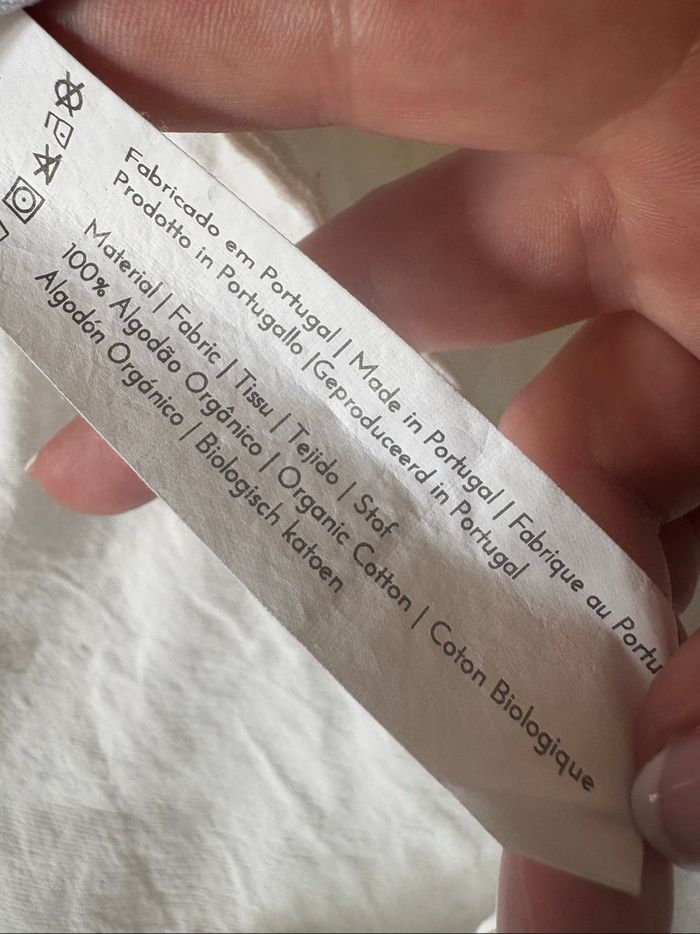 Fabricado em Portugal | Made in Portugal | Fabrique au Portu
Prodotto in Portugallo |Geproduceerd in Portugal
Material | Fabric | Tissu | Tejido | Stof
100% Algodão Orgânico | Organic Cotton | Coton Biologique
Algodón Orgánico | Biologisch katoen